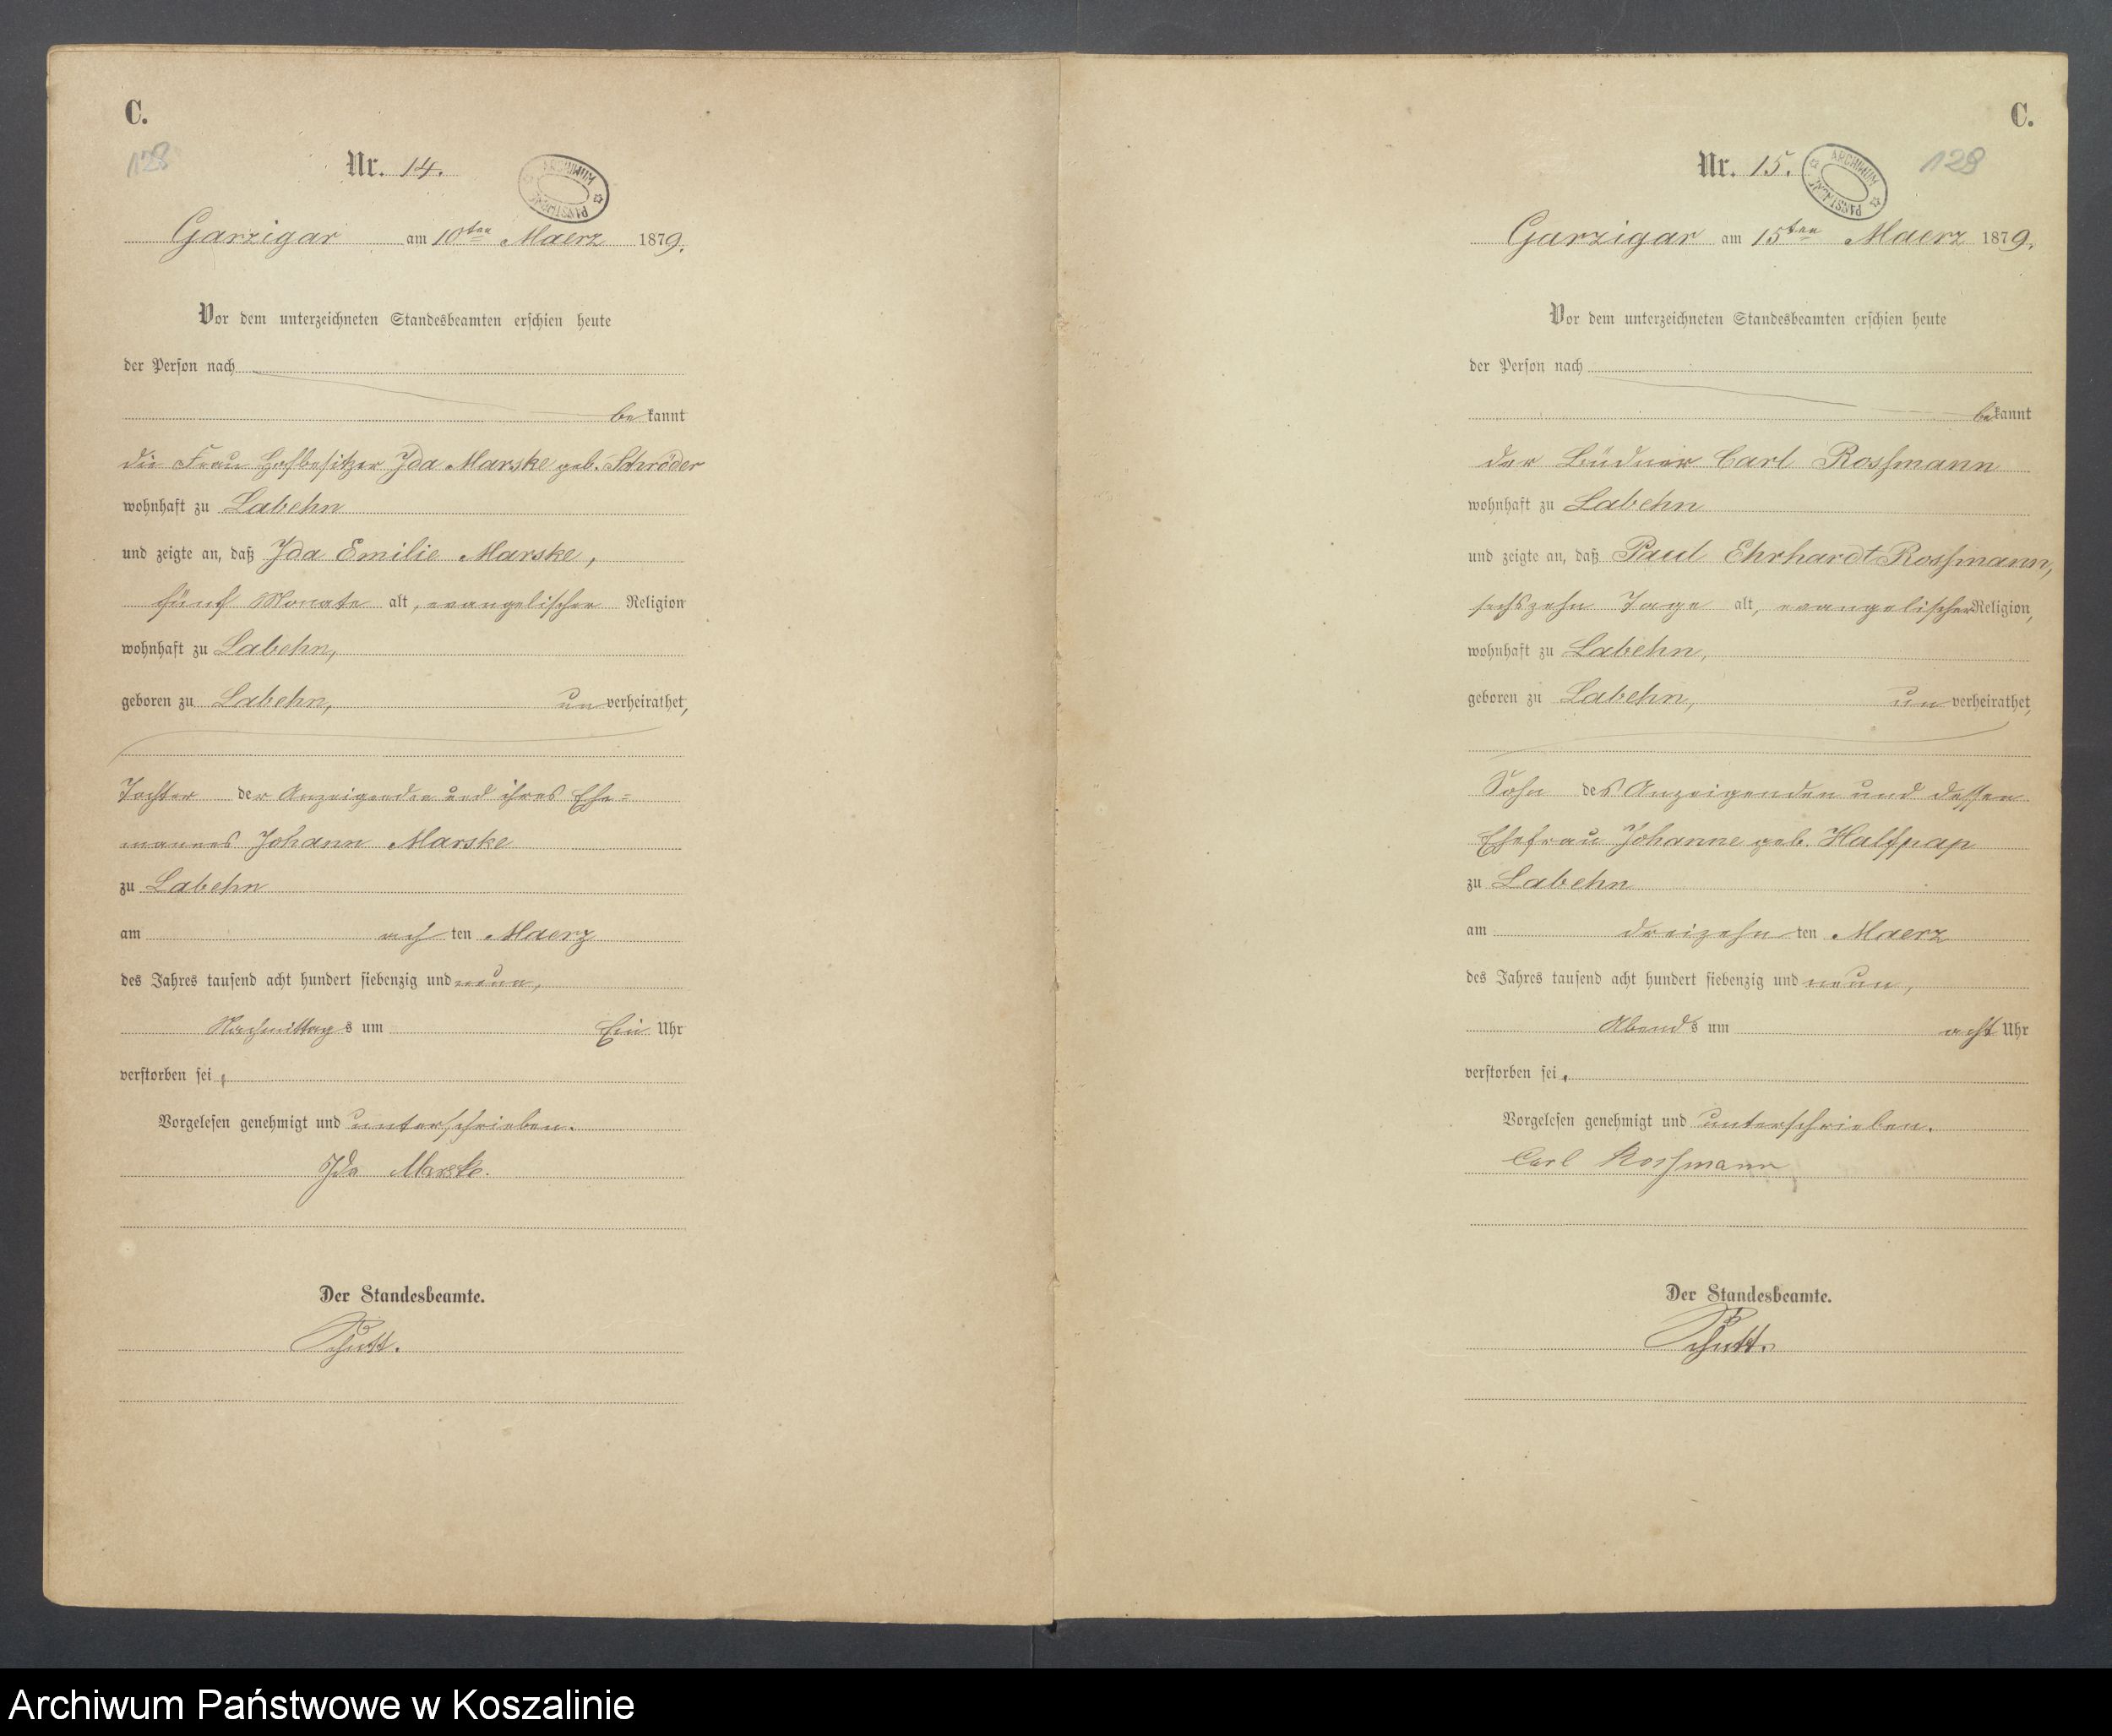 C.
128
Nr. 14.
ARCHIWUM PAŃSTWOWE
Garzigar am 10ten Maerz 1879.
Vor dem unterzeichneten Standesbeamten erschien heute
der Person nach
bekannt
die Frau Hofbesitzer Ida Marske geb. Schröder
wohnhaft zu Labehn
und zeigte an, daß Ida Emilie Marske,
fünf Monate alt, evangelischer Religion
wohnhaft zu Labehn,
geboren zu Labehn, unverheirathet,
Tochter der Anzeigenden und ihres Ehe=
mannes Johann Marske
zu Labehn
am achten Maerz
des Jahres tausend acht hundert siebenzig und neun,
Nachmittags um Ein Uhr
verstorben sei,
Vorgelesen genehmigt und unterschrieben.
Ida Marske.
Der Standesbeamte.
C.
128
Nr. 15.
ARCHIWUM PAŃSTWOWE
Garzigar am 15ten Maerz 1879.
Vor dem unterzeichneten Standesbeamten erschien heute
der Person nach
bekannt
der Büdner Carl Rossmann
wohnhaft zu Labehn
und zeigte an, daß Paul Ehrhardt Rossmann,
sechszehn Tage alt, evangelischer Religion,
wohnhaft zu Labehn,
geboren zu Labehn, unverheirathet,
Sohn des Anzeigenden und dessen
Ehefrau Johanne geb. Halfpap
zu Labehn
am dreizehnten Maerz
des Jahres tausend acht hundert siebenzig und neun,
Abends um acht Uhr
verstorben sei,
Vorgelesen genehmigt und unterschrieben.
Carl Rossmann
Der Standesbeamte.
Archiwum Państwowe w Koszalinie